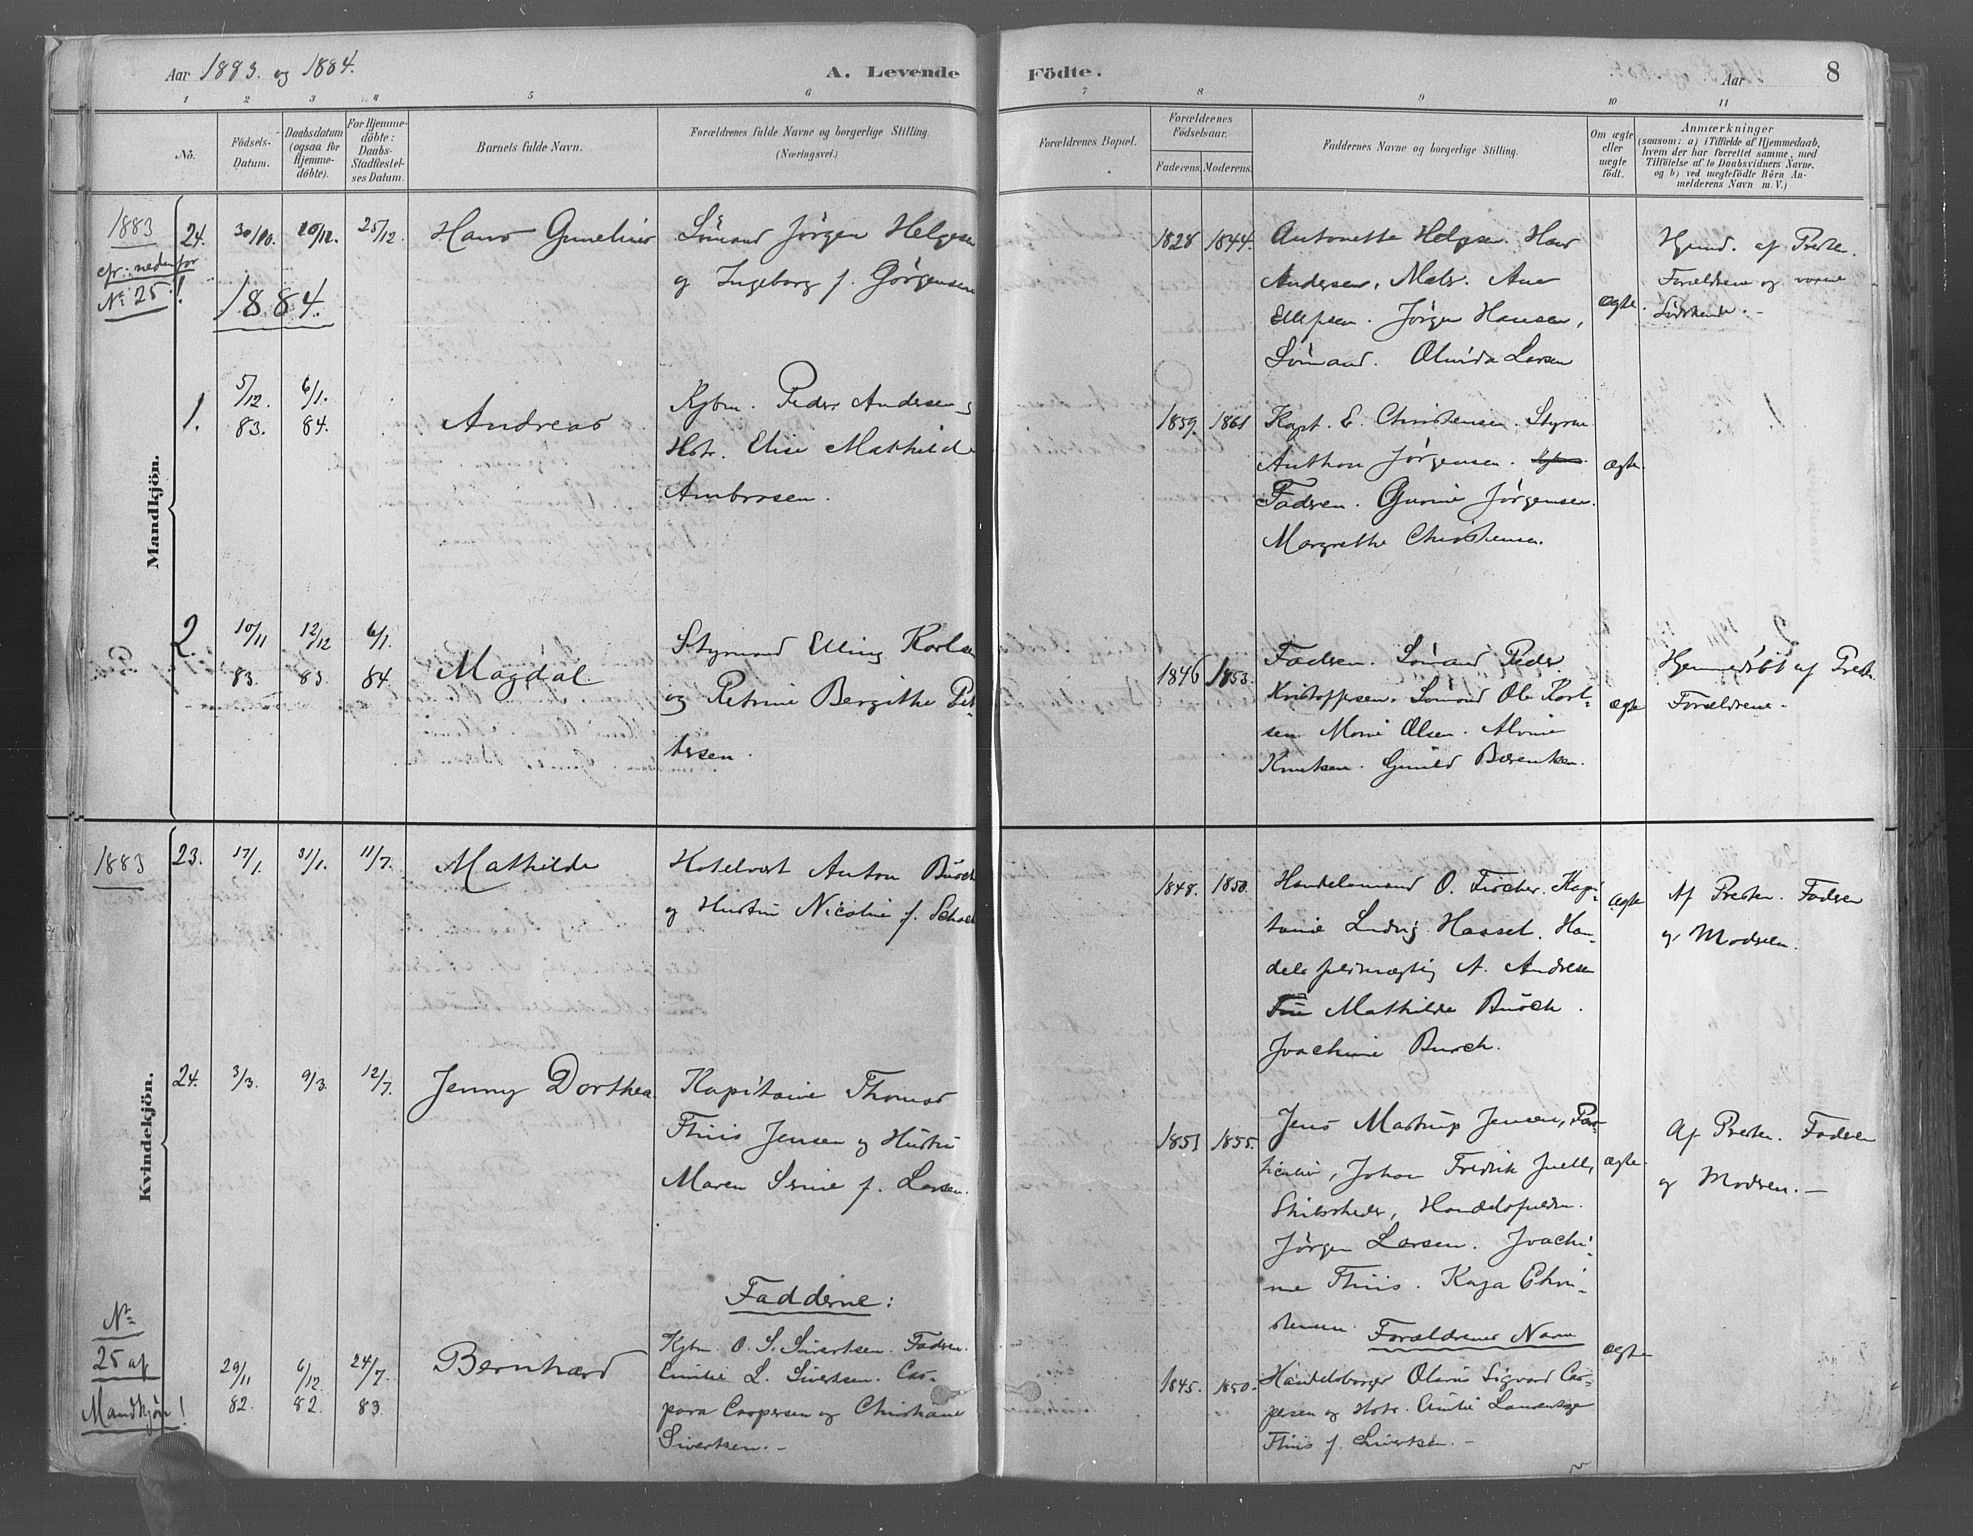 Aar 1883. og 1884.
A. Levende
Födte.
Aar
8
1 2 3 4 5 6 7 8 9 10 11
No.
Födsels-
Datum.
Daabsdatum
(ogsaa for
Hjemme-
döbte).
For Hjemme-
döbte:
Daabs-
Stadfæstel-
ses Datum.
Barnets fulde Navn.
Forældrenes fulde Navne og borgerlige Stilling.
(Næringsvei.)
Forældrenes Bopæl.
Forældrenes
Födselsaar.
Faderens.
Moderens.
Faddernes Navne og borgerlige Stilling.
Om ægte
eller
uægte
født.
Anmærkninger
(saasom: a) i Tilfælde af Hjemmedaab,
hvem der har forrettet samme, med
Tilföielse af to Daabsvidners Navne,
og b) ved uægtefödte Börn An-
melderens Navn m. V.)
Mandkjön.
1883
cfr: nedenfor
No 25!
24. 30/10. 20/12. 25/12.
Hans
Sömand Jörgen Helgesen
og Ingeborg f. Görgensen
1828 1844.
Antonette Helgesen. Hans
Andersen, Matr. Ane
Ellefsen. Jörgen Hansen,
Sömand. Olivida Larsen
ægte.
Hjemd. af Presten.
Forældrene og
Södskende.-
1884.
1. 5/12. 83. 6/1. 84.
Andreas
Kjbm. Peder Andersen,
Hstr. Elise Mathilde
Ambrosen.
1859. 1861
Kapt. E. Christensen. Styrm
Anthon Jörgensen.
Fadren. Gurine Jörgensen.
Margrethe Christensen.
ægte
2. 10/11 83. 12/12 83. 6/1. 84
Magdal.
Styrmand Elling Karlsen
og Petrine Bergithe Pet-
tersen.
1846 1853.
Fadren. Sömand Peder
Kristoffersen. Sömand Ole Karl-
sen Marie Olsen. Alvine
Knutsen. Gunild Bærentsen.
ægte
Hjemmedöbt af Presten
Forældrene.
Kvindekjön.
1883
23. 17/1. 31/1. 11/7.
Mathilde
Hotelvert Anton Busch
og Hustru Nicoline f.
1848. 1850.
Handelsmand O. Fischer. Kapi-
taine Ludvig Hassel. Han-
dels A. Andresen
Fru Mathilde Busch.
Joachime Busch.
ægte
Af Presten. Fadren
og Modren.
24. 3/3. 9/3. 12/7.
Jenny Dorthea
Kapitaine Thomas
Thiis Jensen og Hustru
Maren Serine f. Larsen.
1851 1855.
Jens Mastrup Jensen, Par-
ticulier, Johan Fredrik Juell,
Skibsrheder, Handelsfuldm.
Jörgen Larsen. Joachi-
me Thiis. Kaja Chri-
stensen.
ægte.
Af Presten. Fadren
og Modren.-
No
25 af
Mandkjön!
29/11 82. 6/12. 82. 24/7. 83.
Bernhard
Fadderne:
Kjbm O. S. Sivertsen. Fadren.
Emilie L. Sivertsen. Cas-
para Caspersen og Christiane
Sivertsen.-
1845. 1850.
Forældrenes Navn
Handelsborger Olavus Sigvard Cas-
persen og Hstr. Emilie Laurentze
Thiis f. Sivertsen.-
ægte